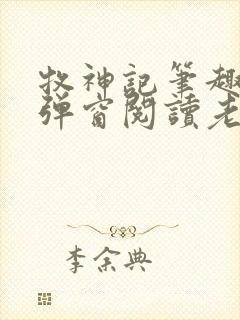 牧神記筆趣
彈窗閱讀老
李余典